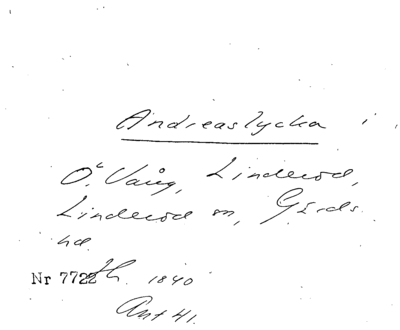 Andreaslycka i
Ö. Vång, Linderöd,
Linderöd sn, Gärds
hd.
Nr 7722 1840
Ant 41.